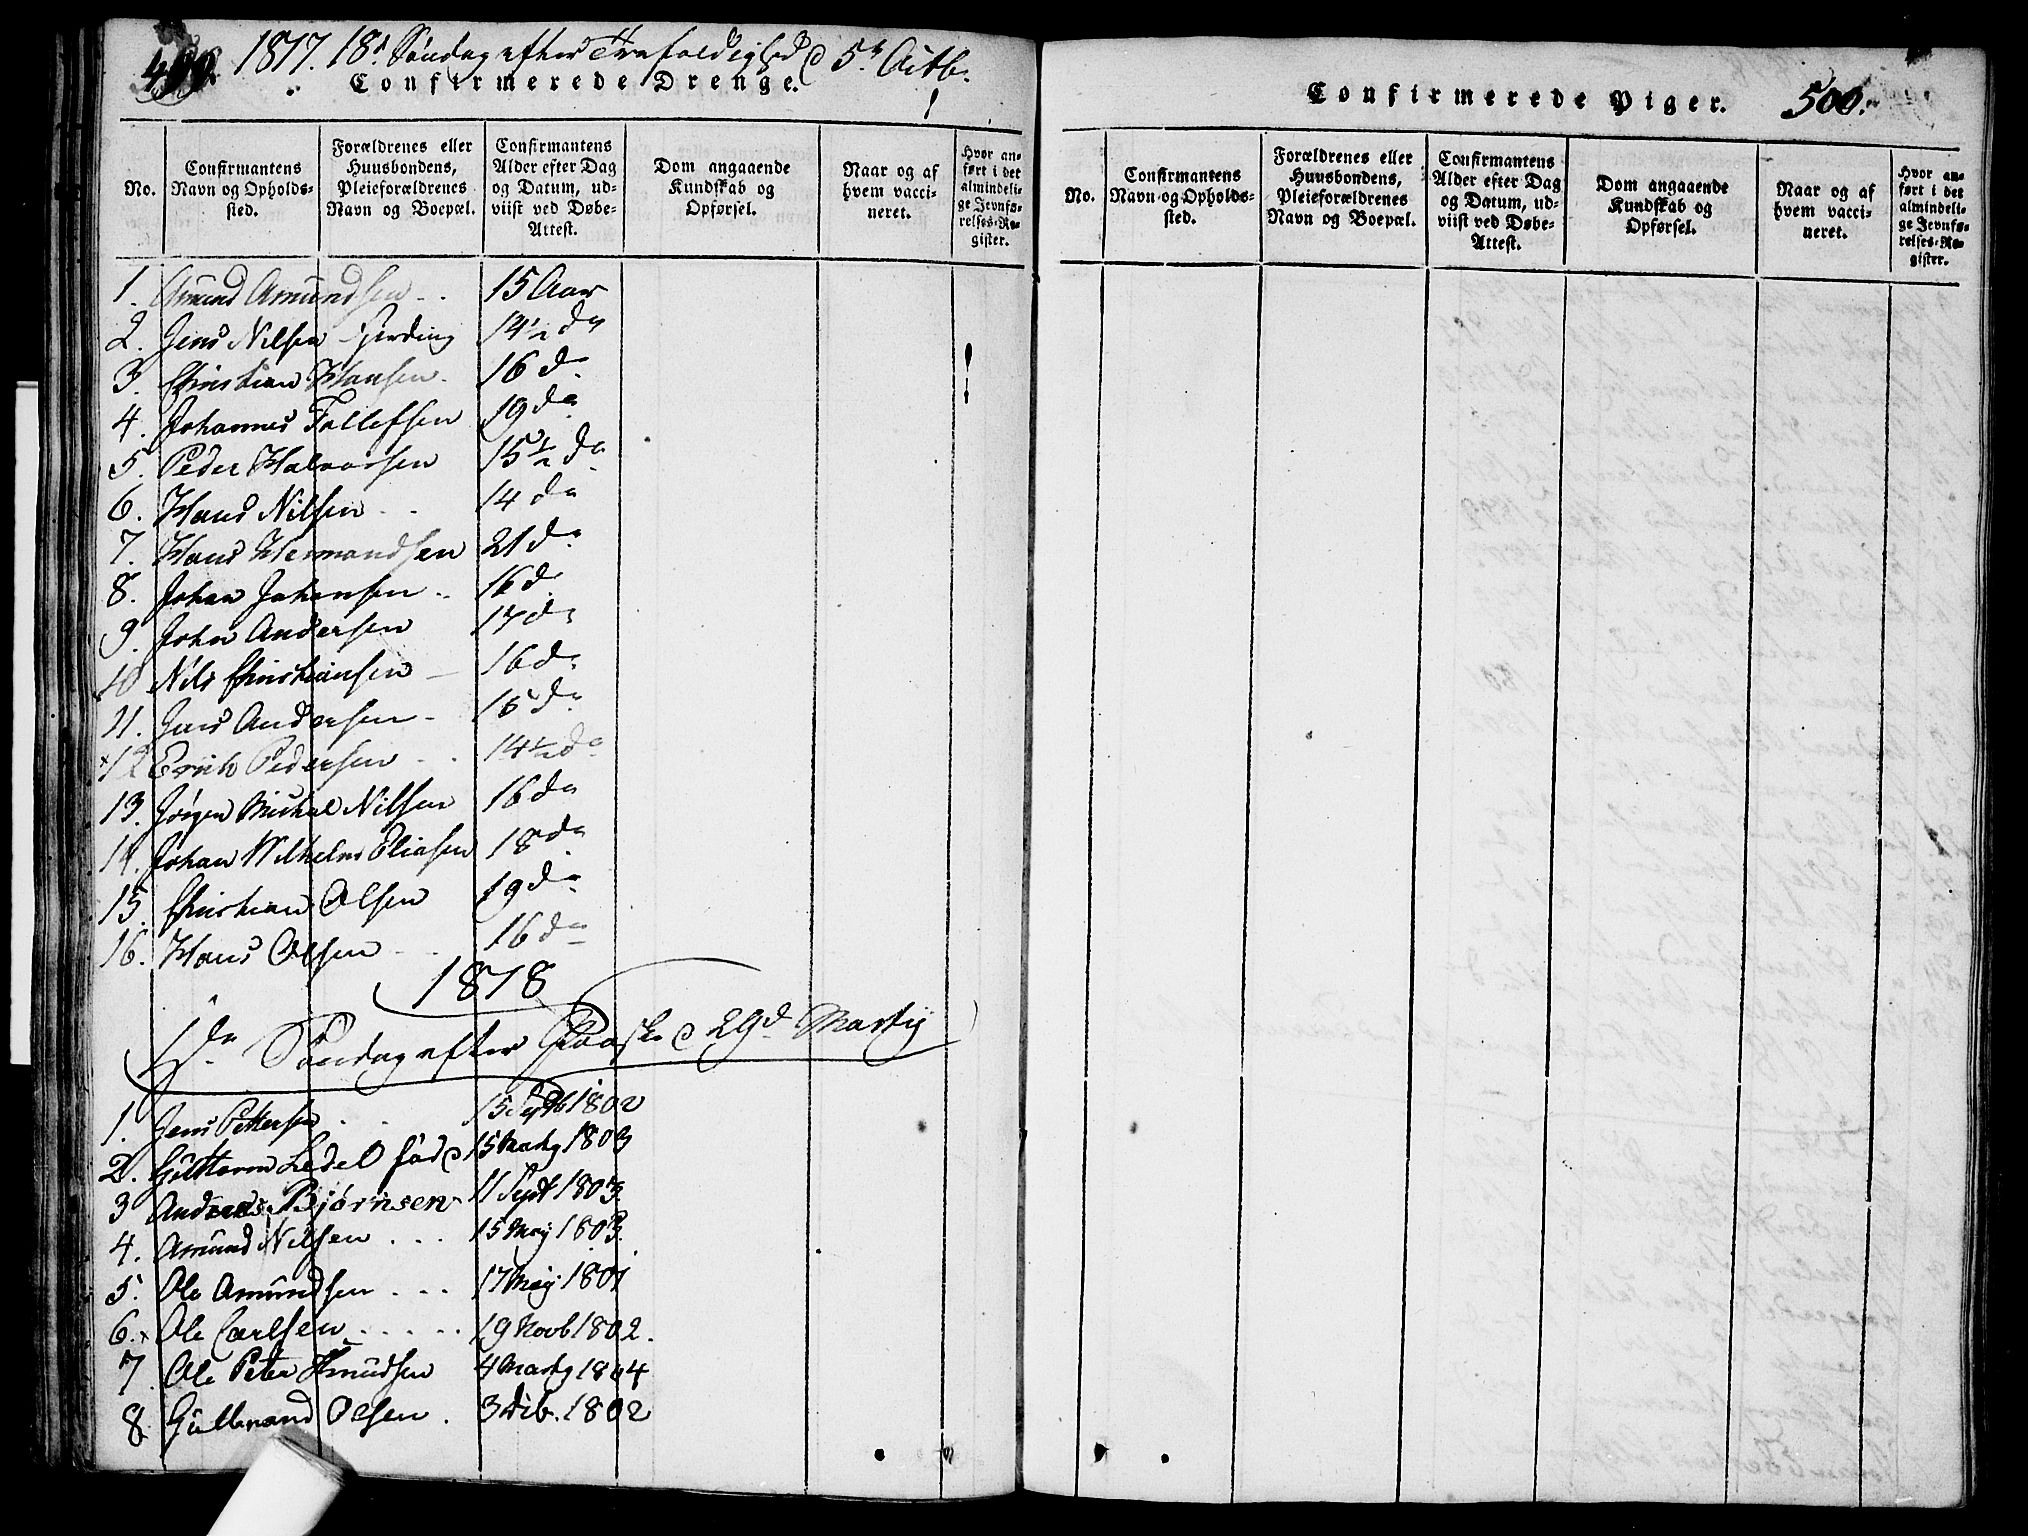 499. 1817. 18d Søndag efter Trefoldighed d 5t Octb.
Confirmerede Drenge.
No.
Confirmantens Navn og Opholds-sted.
Forældrenes eller Huusbondens, Pleieforældrenes Navn og Boepæl.
Confirmantens Alder efter Dag og Datum, ud-viist ved Døbe-Attest.
Dom angaaende Kundskab og Opførsel.
Naar og af hvem vacci-neret.
Hvor an-ført i det almindeli-ge Jevnfø-relses-Re-gister.
1. Amund Amundsen 15 Aar
2. Jens Nilsen Gjerding 14½ do
3. Christian Hansen 16 do
4. Johannes Tollefsen 19 do
5. Peder Halvorsen 15½ do
6. Hans Nilsen 14 do
7. Hans Hermandsen 21 do
8. Johan Johansen 16 do
9. John Andersen 17 do
10 Nils Christiansen 16 do
11. Jens Andersen 16 do
12 Erick Pedersen 14½ do
13. Jörgen Michal Nilsen 16 do
14. Johan Wilhelm Eliasen 18 do
15. Christian Olsen 19 do
16. Hans Olsen 16 do
1818
1ste Søndag efter Paaske d 29d Martij
1. Jens Pettersen 15 Septb 1802
2. Guttorm Ledel född 15 Martij 1803
3 Andreas Bjørnsen 11 Sept 1803.
4. Amund Nilsen 15 Maij 1803.
5. Ole Amundsen 17 Maij 1801
6. Ole Carlsen 19 Novb 1802.
7 Ole Peter Knudsen 4 Martij 1804
8 Gulbrand Olsen 3 Dcb. 1802
Confirmerede Piger. 500.
No.
Confirmantens Navn og Opholds-sted.
Forældrenes eller Huusbondens, Pleieforældrenes Navn og Boepæl.
Confirmantens Alder efter Dag og Datum, ud-viist ved Døbe-Attest.
Dom angaaende Kundskab og Opførsel.
Naar og af hvem vacci-neret.
Hvor an-ført i det almindeli-ge Jevnfø-relses-Re-gister.